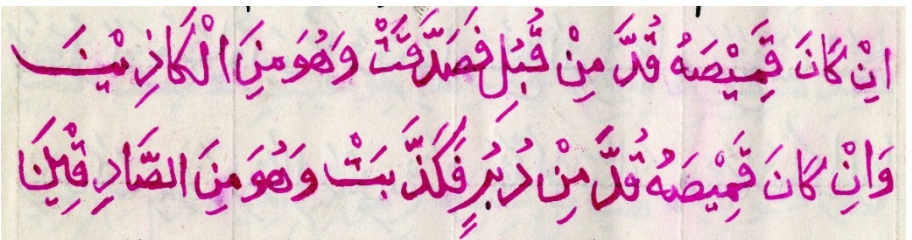 اِنْ كَانَ قَمِيْصَهُ قُدَّ مِنْ قُبُلٍ فَصَدَّقَتْ وَهُوَ مِنَ الْكَاذِبِيْنَ
وَاِنْ كَانَ قَمِيْصَهُ قُدَّ مِنْ دُبُرٍ فَكَذَّبَتْ وَهُوَ مِنَ الصَّادِقِيْنَ